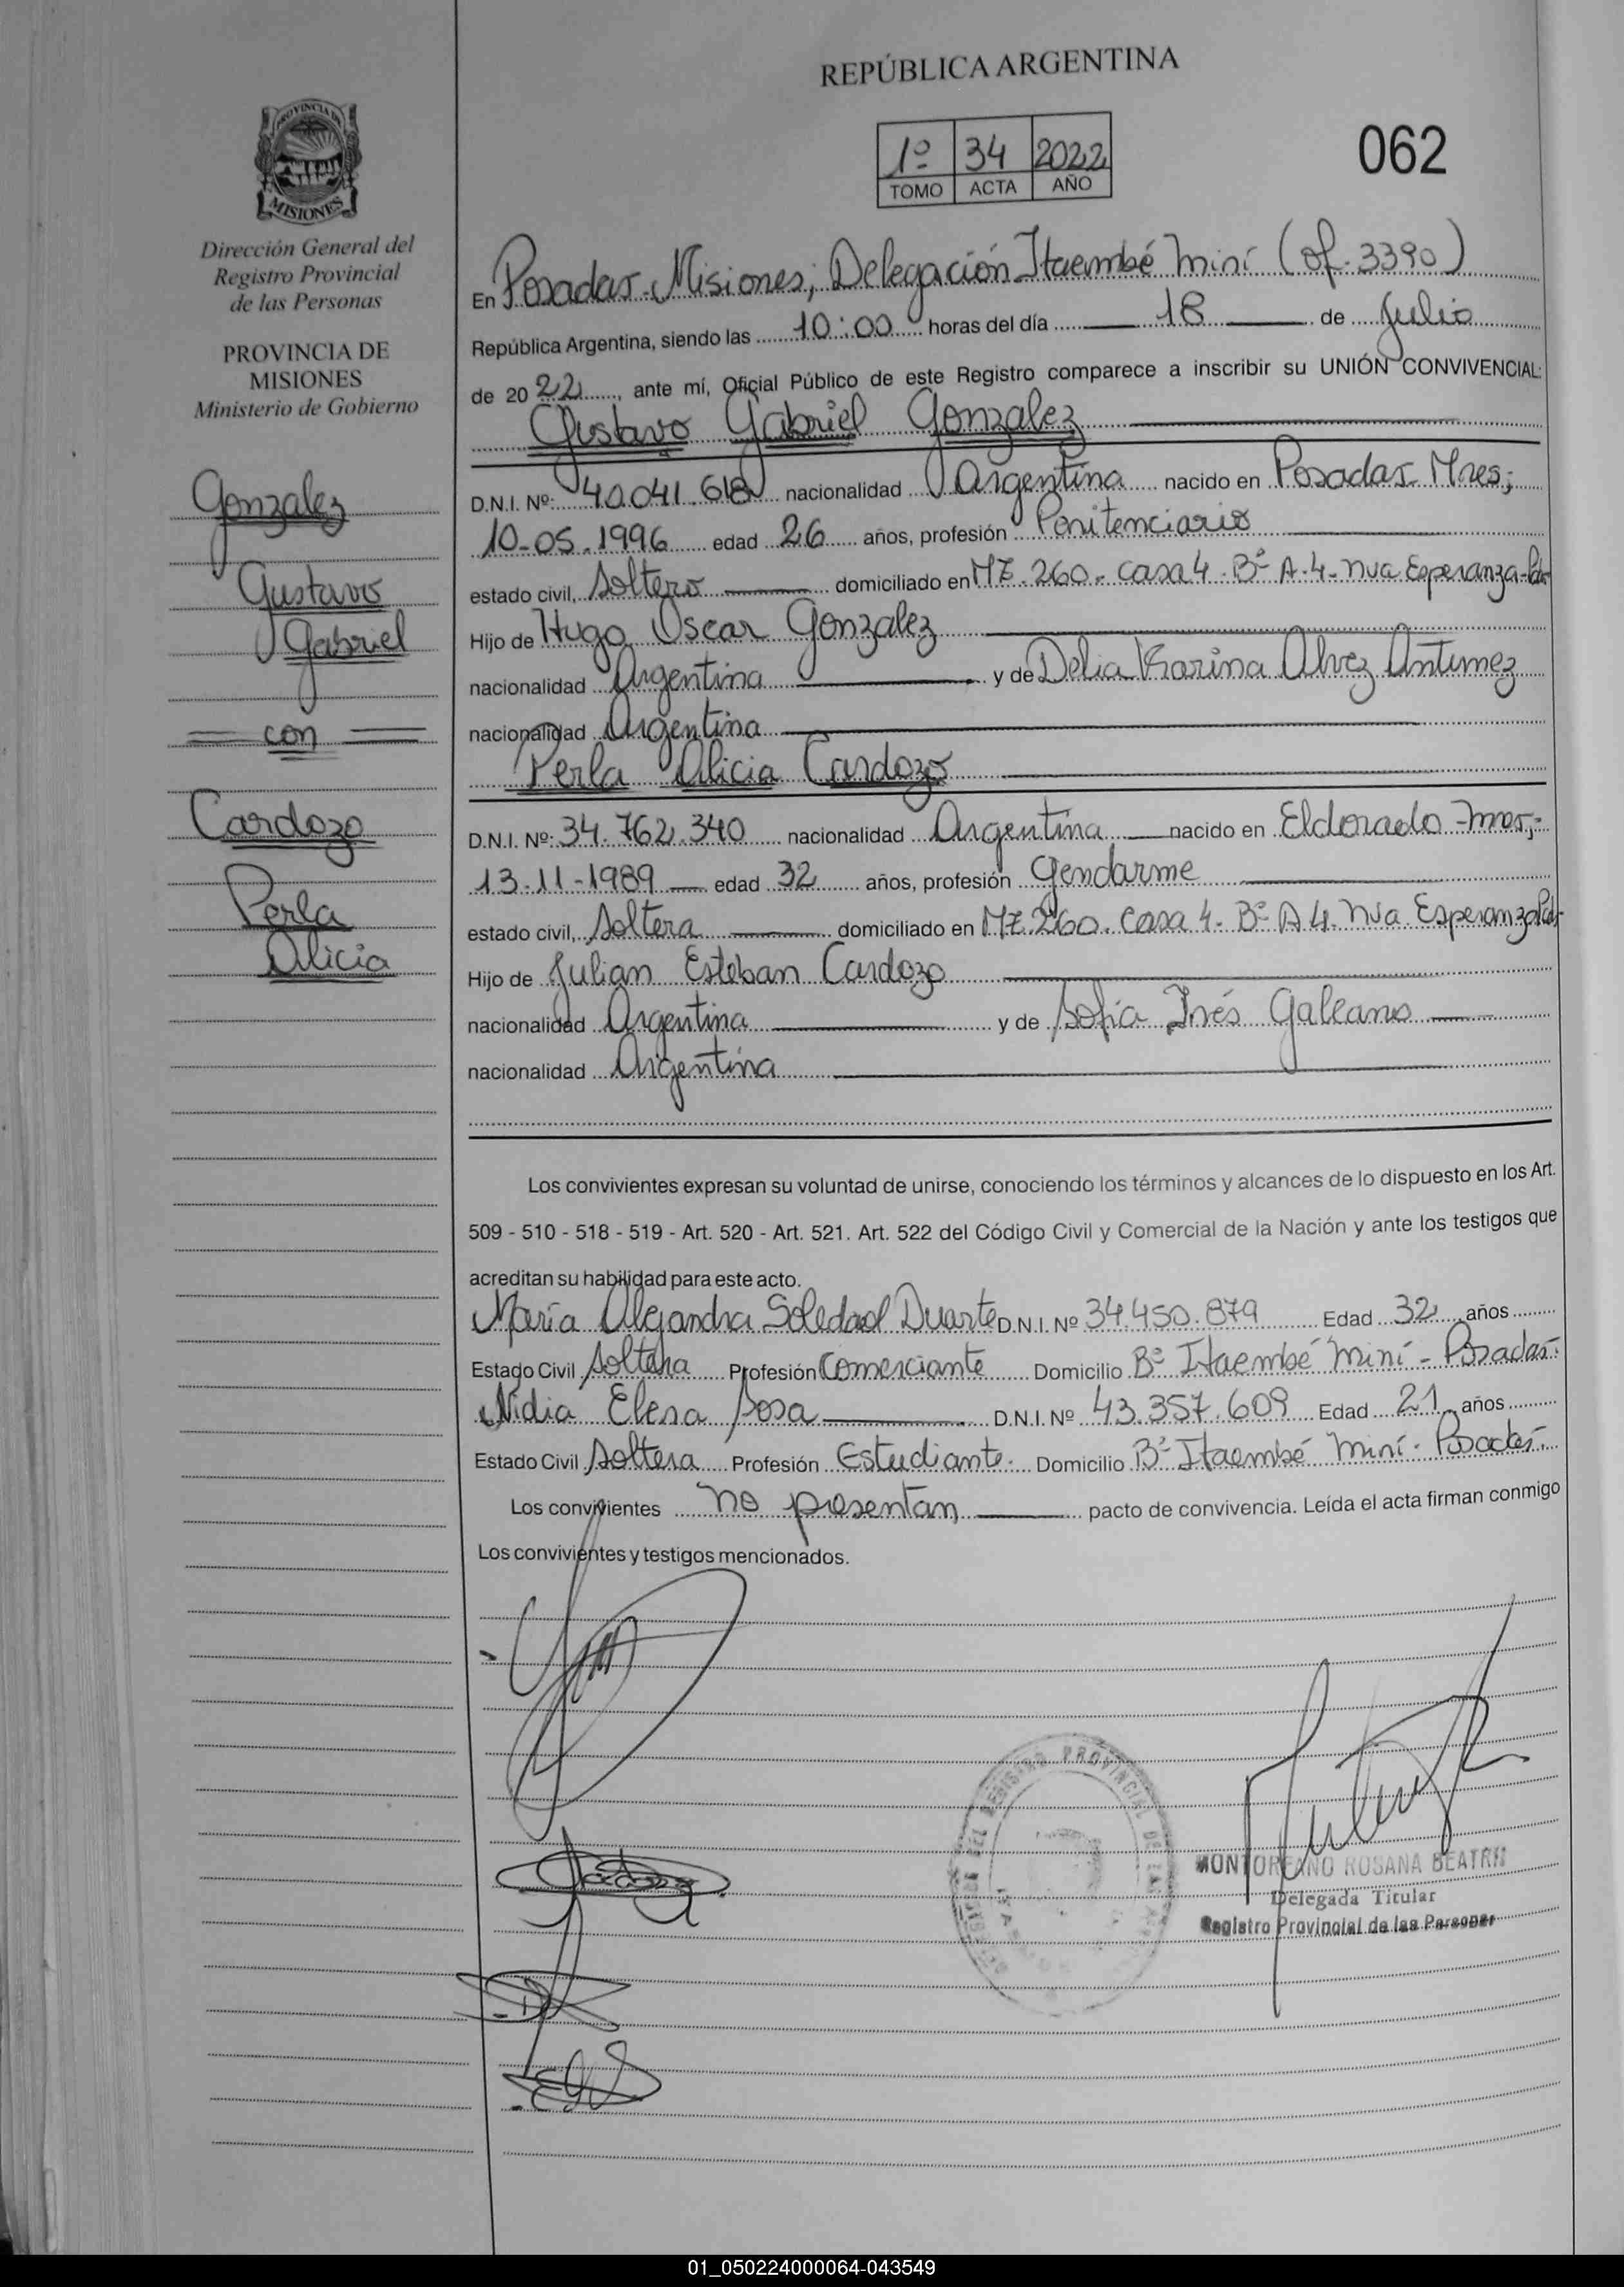 REPÚBLICA ARGENTINA
1º 34 2022
TOMO ACTA AÑO
062
PROVINCIA DE
MISIONES
Dirección General del
Registro Provincial
de las Personas
PROVINCIA DE
MISIONES
Ministerio de Gobierno
Gonzalez
Gustavo
Gabriel
con
Cardozo
Perla
Alicia
En Posadas-Misiones; Delegación Itaembé Miní (of. 3390)
República Argentina, siendo las 10:00 horas del día 18 de Julio
de 2022, ante mí, Oficial Público de este Registro comparece a inscribir su UNIÓN CONVIVENCIAL:
Gustavo Gabriel Gonzalez
D.N.I. Nº: 40.041.618 nacionalidad Argentina nacido en Posadas-Mnes;
10-05-1996 edad 26 años, profesión Penitenciario
estado civil, Soltero domiciliado en MZ.260-casa 4-Bº A-4-nva Esperanza-
Hijo de Hugo Oscar Gonzalez
nacionalidad Argentina y de Delia Karina Alvez Antunez
nacionalidad Argentina
Perla Alicia Cardozo
D.N.I. Nº: 34.762.340 nacionalidad Argentina nacido en Eldorado-mnes;-
13-11-1989 edad 32 años, profesión Gendarme
estado civil, Soltera domiciliado en MZ.260. casa 4-Bº A4-nva Esperanza
Hijo de Julian Esteban Cardozo
nacionalidad Argentina y de Sofia Inés Galeano
nacionalidad Argentina
Los convivientes expresan su voluntad de unirse, conociendo los términos y alcances de lo dispuesto en los Art.
509 - 510 - 518 - 519 - Art. 520 - Art. 521. Art. 522 del Código Civil y Comercial de la Nación y ante los testigos que
acreditan su habilidad para este acto.
María Alejandra Soledad Duarte D.N.I. Nº 34.450.879 Edad 32 años
Estado Civil Soltera Profesión Comerciante Domicilio Bº Itaembé Miní - Posadas-
Nidia Elena Sosa D.N.I. Nº 43.357.609 Edad 21 años
Estado Civil Soltera Profesión Estudiante. Domicilio Bº Itaembé Miní - Posadas-
Los convivientes no presentan pacto de convivencia. Leída el acta firman conmigo
Los convivientes y testigos mencionados.
REGISTRO PROVINCIAL DE LAS
MONTOREANO ROSANA BEATRIZ
Delegada Titular
Registro Provincial de las Personas
01_050224000064-043549